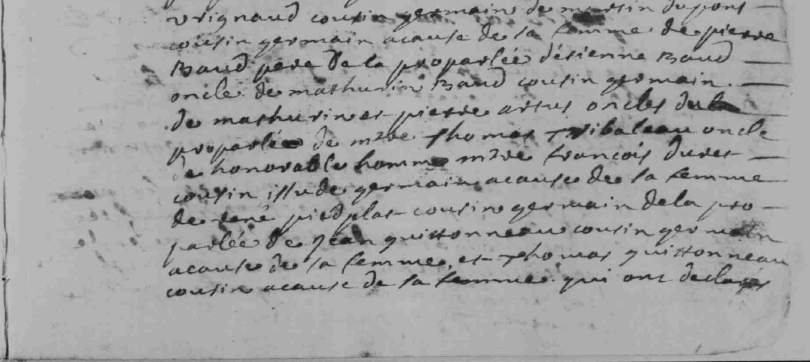 vrignaud cousin germain de martin dupont
cousin germain acause de sa femme de pierre
Baud pere de la proparlée d'estienne Baud
oncle de mathurin Baud cousin germain
de mathurin et pierre artus oncles de la
proparlée de mre Thomas Tribaleau oncle
de honorable homme mre francois dures
cousin issu de germain acause de sa femme
de rené piedplat cousin germain de la pro
parlée de Jean guittonneau cousin germain
acause de sa femme et Thomas guittonneau
cousin acause de sa femme qui ont declarés